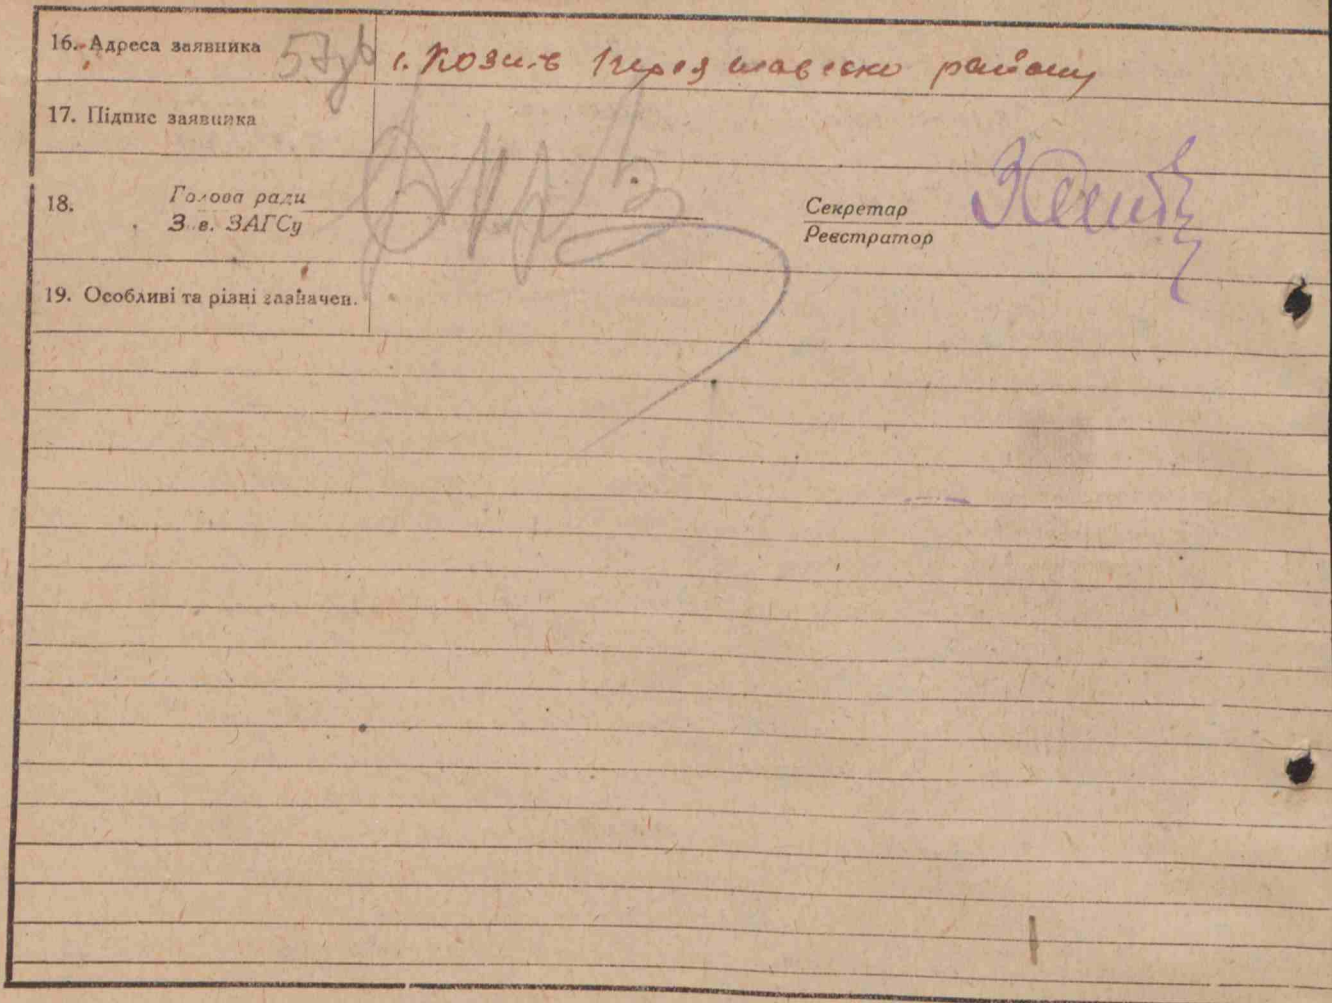 16. Адреса заявника с. Козин Переяславсько району
17. Підпис заявника
18. Голова ради Секретар
З в. ЗАГСу Реєстратор
19. Особливі та різні зазначен.